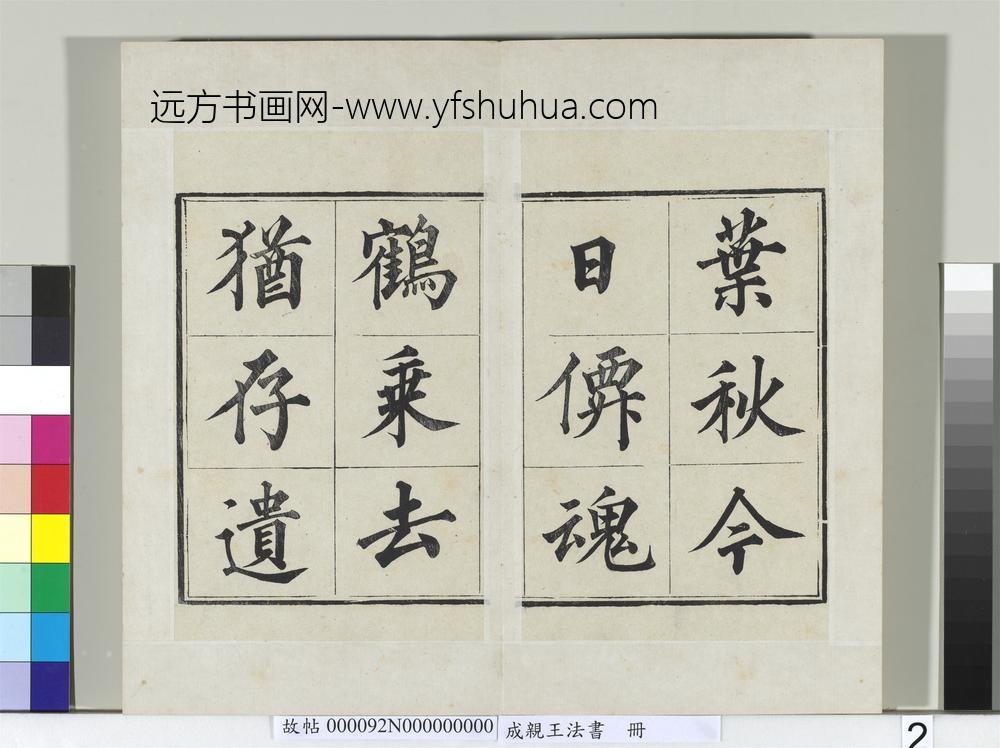 远方书画网-www.yfshuhua.com
葉秋今
日僲魂
鶴乗去
猶存遺
故帖 000092N000000000 成親王法書 冊
2